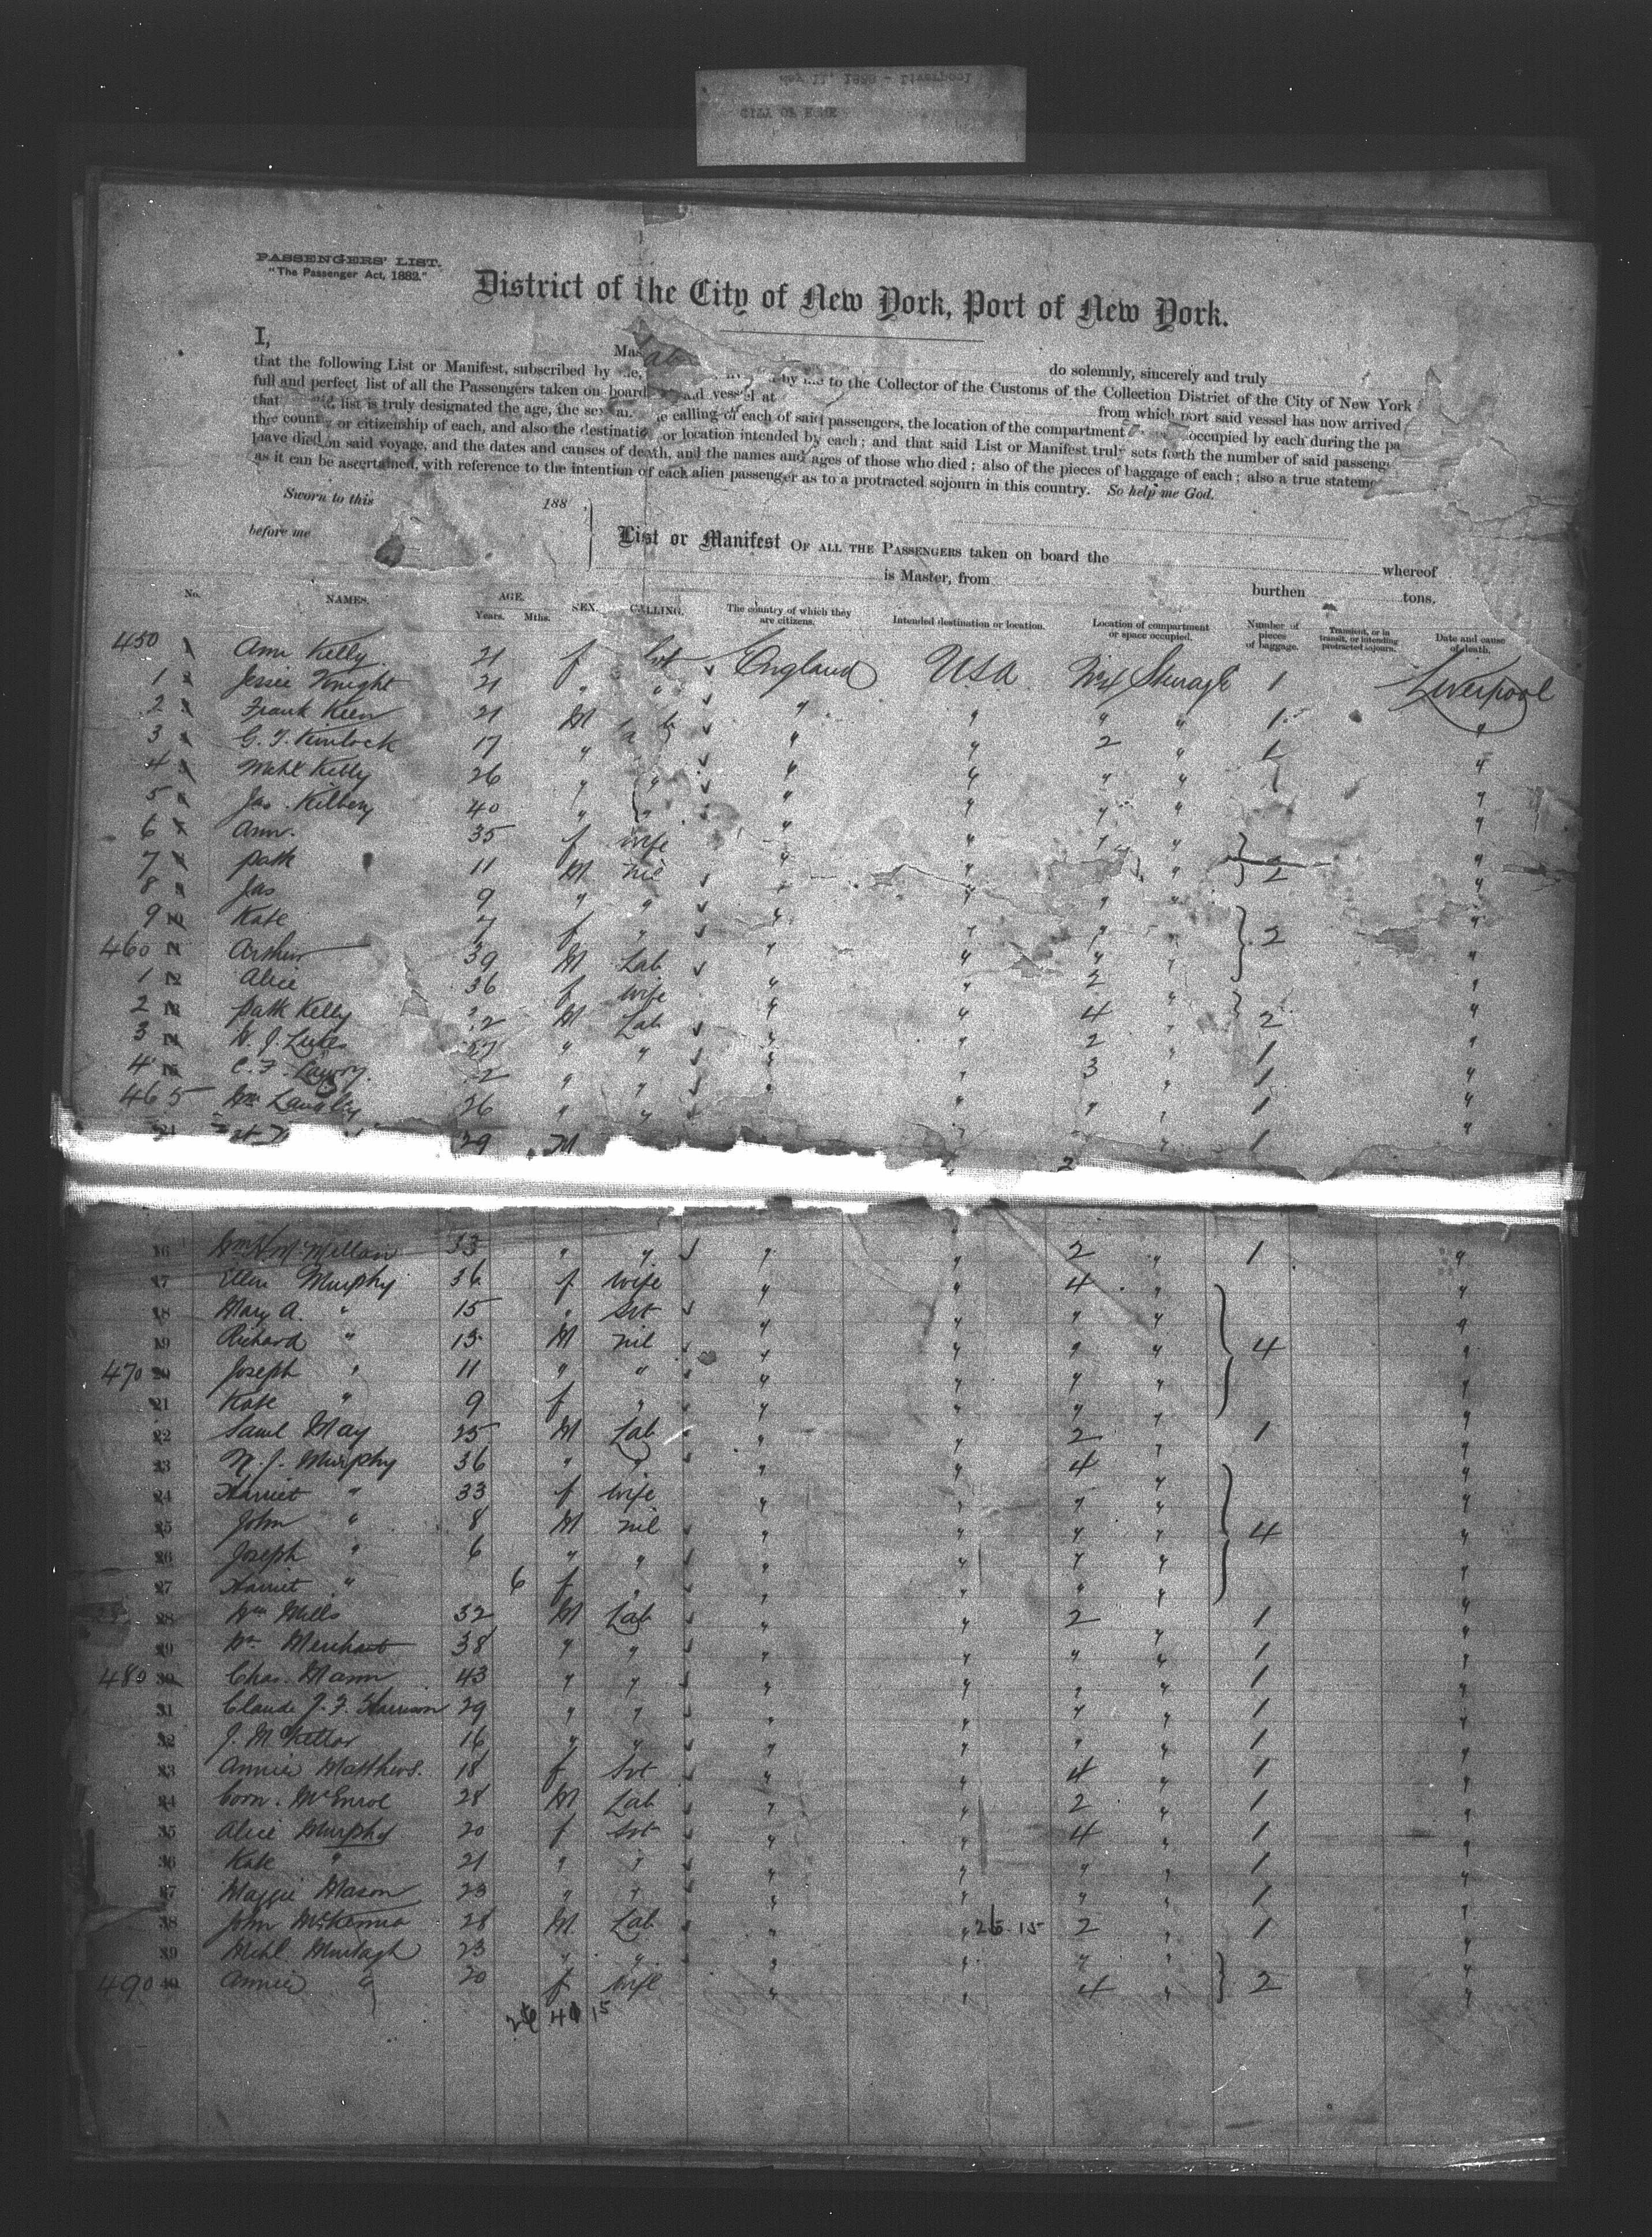 CITY OF ROME
PASSENGERS' LIST.
"The Passenger Act, 1882."
District of the City of New York, Port of New York.
I, Mas do solemnly, sincerely and truly
that the following List or Manifest, subscribed by me, by me to the Collector of the Customs of the Collection District of the City of New York
full and perfect list of all the Passengers taken on board said vessel at from which port said vessel has now arrived
that list is truly designated the age, the sex calling of each of said passengers, the location of the compartment occupied by each during the pa
the country or citizenship of each, and also the destination or location intended by each; and that said List or Manifest truly sets forth the number of said passeng
have died on said voyage, and the dates and causes of death, and the names and ages of those who died; also of the pieces of baggage of each; also a true stateme
as it can be ascertained, with reference to the intention of each alien passenger as to a protracted sojourn in this country. So help me God.
Sworn to this 188
before me
List or Manifest OF ALL THE PASSENGERS taken on board the whereof
is Master, from burthen tons.
No. NAMES. AGE. Years. Mths. SEX. CALLING. The country of which they are citizens. Intended destination or location. Location of compartment or space occupied. Number of pieces of baggage. Transient, or in transit, or intending protracted sojourn. Date and cause of death.
450 Ann Kelly 21 f Svt England USA Steerage 1 Liverpool
1 Jessie Knight 21 " " " " " " 1 "
2 Frank Keen 21 M " " 2 " 1 "
3 G. T. Kinlock 17 " " " " " "
4 Mchl Kelly 26 " " " " " " "
5 Jas. 40 " " " " " " "
6 Ann 35 f wife " " " " 2 "
7 Patk 11 M nil " " " " "
8 Jas 9 " " " " " " "
9 Kate 7 f " " " " " 2 "
460 Arthur 39 M Lab " " " "
1 Alice 36 f wife " " 2 " "
2 Patk Kelly M Lab " " 4 " 2 "
3 W. J. Lukes 27 " " " " 2 " 1 "
4 C. F. " " " " 3 " 1 "
465 Wm Langley 26 " " " " " 1 "
29 M 2 " 1
16 Wm H McMillan 33 " " " " 2 " 1 "
17 Ellen Murphy 36 f wife " " 4 " "
18 Mary A. " 15 " Svt " " " " "
19 Richard " 13 M nil " " " " 4 "
470 20 Joseph " 11 " " " " " " "
21 Kate " 9 f " " " " " "
22 Saml May 25 M Lab " " 2 " 1 "
23 N. J. Murphy 36 " " " " 4 " "
24 Harriet " 33 f wife " " " " "
25 John " 8 M nil " " " " 4 "
26 Joseph " 6 " " " " " " "
27 Harriet " 6 f " " " " " "
28 Wm Mills 32 M Lab " " 2 " 1 "
29 Wm Merchant 38 " " " " " " 1 "
480 30 Chas. Mann 43 " " " " " " 1 "
31 Claude J. F. Harrison 29 " " " " " " 1 "
32 J. McKellar 16 " " " " " " 1 "
33 Annie Matthews. 18 f Svt " " 4 " 1 "
34 Corn. McEnroe 28 M Lab " " 2 " 1 "
35 Alice Murphy 20 f Svt " " 4 " 1 "
36 Kate " 21 " " " " " " 1 "
37 Maggie Mason 23 " " " " " " 1 "
38 John McKenna 28 M Lab " " 2 " 1 "
39 Mchl Murtagh 23 " " " " " " "
490 40 Annie " 20 f wife " " 4 " 2 "